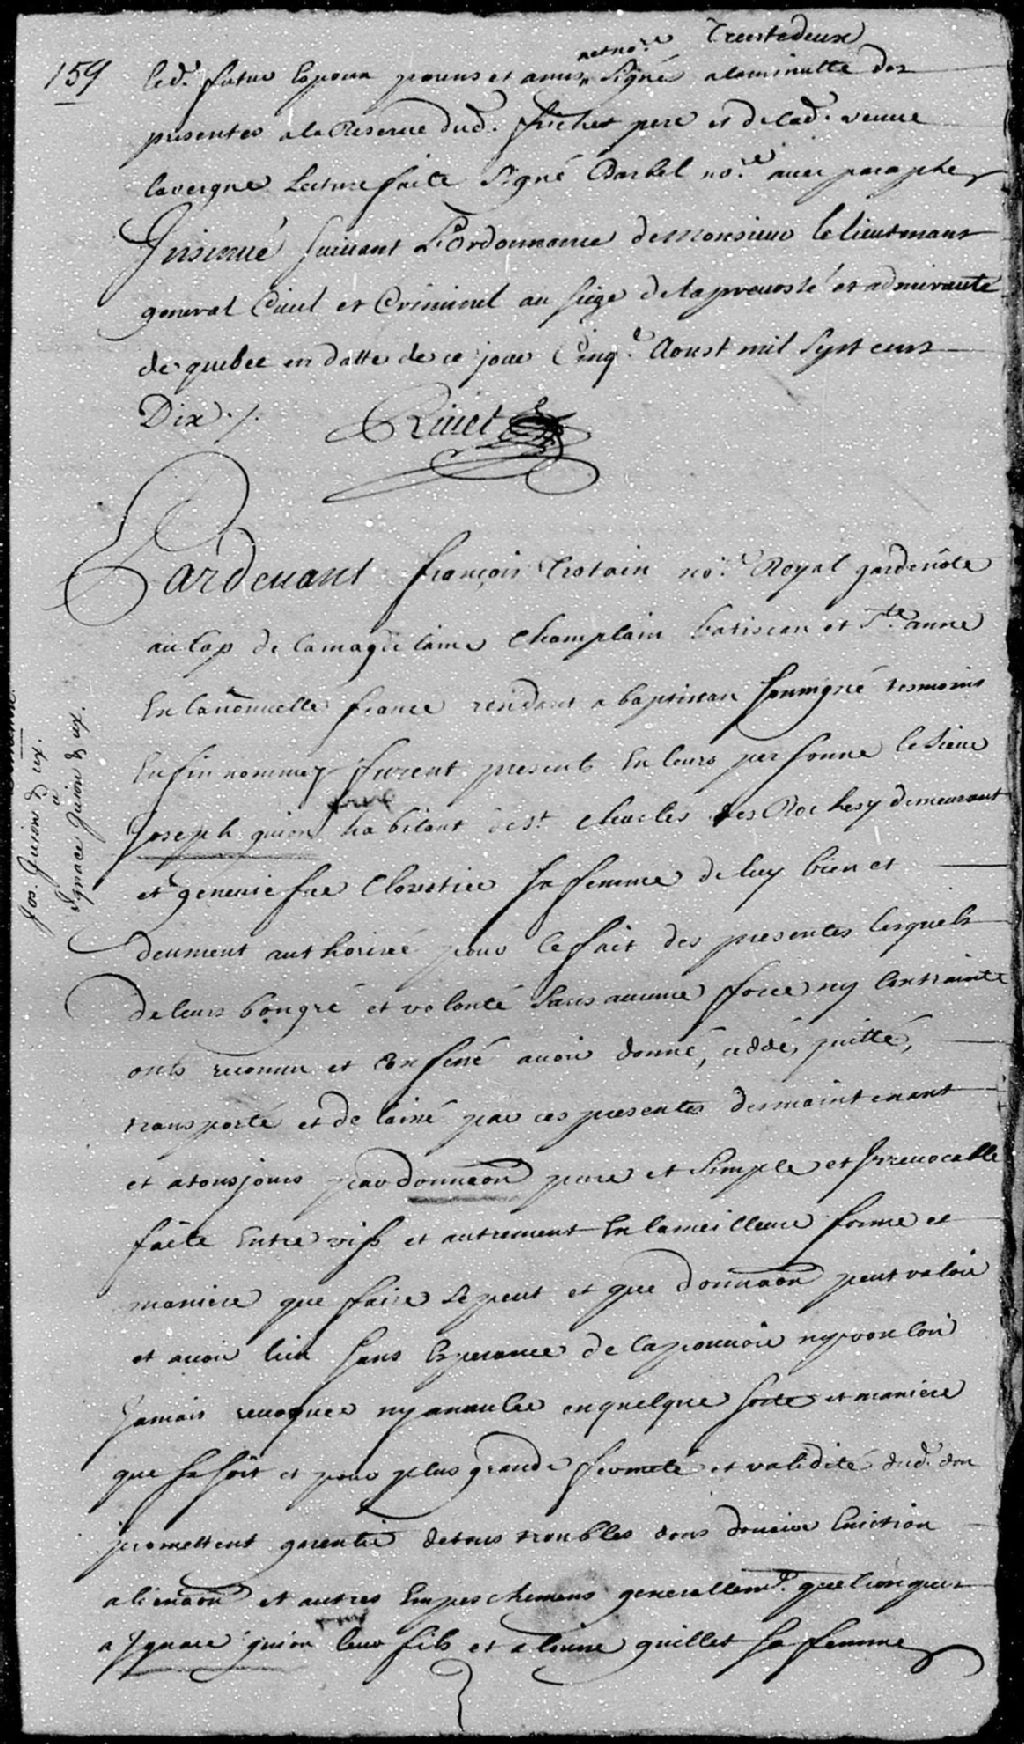 Trente deux
159
et no.re
led. futur Epoux parens et amis signé a la minutte des
presentes a la Reserve dud. pere et de lad. veuve
lavergne Lecture faite Signé Barbel no.re avec paraphe
Insinué suivant L'Ordonnance de Monsieur le lieutenant
general Civil et Criminel au siege de la prevosté et admirauté
de quebec en datte de ce jour Cinq.e Aoust mil sept cens
Dix ./.
Rivet
Pardevant françois Trotain no.re Royal gardenote
au Cap de la magdelaine Champlain batiscan et Ste anne
En la nouvelle france residant a baptiscan soussigné tesmoins
Enfin nommez furent presents En leurs personne le Sieur
Joseph guion habitant de St. Charles des Roches y demeurant
et geneviefve Cloustier sa femme de luy bien et
deument authorisé pour le fait des presentes lesquels
de leurs bongré et volonté sans aucune force ny Contrainte
onts reconnu et Confessé avoir donné, ceddé, quitté,
transporté et delaissé par ces presentes desmaintenant
et a tousjours par donnaon pure et simple et Irrevocable
faite Entre vifs et autrement En la meilleure forme et
maniere que faire se peut et que donnaon peut valoir
et avoir lieu sans Esperance de la pouvoir
Jamais revoquer ny annuller en quelque sorte et maniere
que se soit et pour plus grande fermeté et validité dud. don
promettent garentir de tous troubles dons douaire Eviction
alienaon et autres Empeschemens generallem.t quelconques
a Ignace guion leur fils et a louise guillet sa femme
Jos. Guion & ux.
à
Ignace Guion & ux.